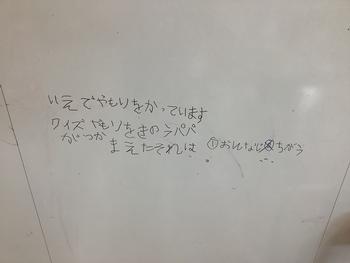 いえでやもりをかっています
クイズ やもりをきのうパパ
がつか
まえたそれは ①おんなじ ちがう